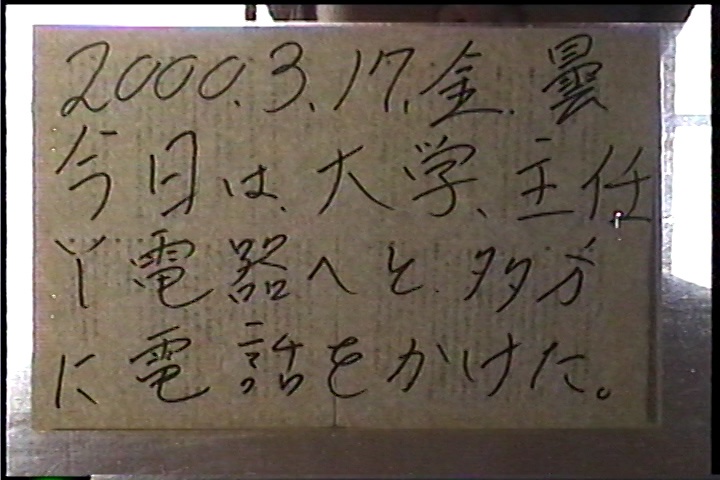 2000.3.17.金.曇
今日は、大学、主任
Y電器へと、多方
に電話をかけた。